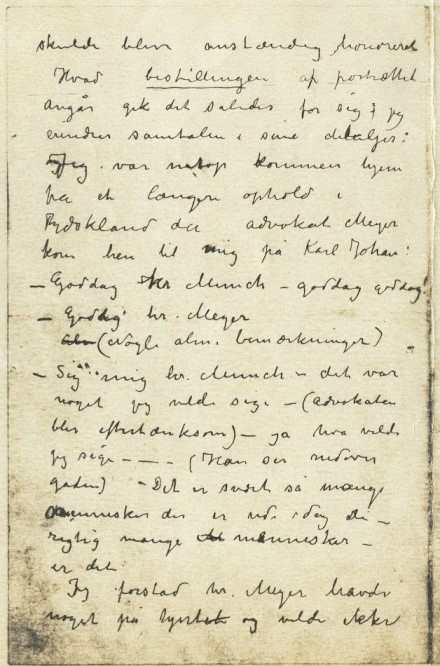 skulde blive anstændig honoreret
Hvad bestillingen af portrættet
angår gik det således for sig; jeg
erindrer samtalen i sine detaljer:
Jeg var netop kommen hjem
fra et længere ophold i
Tydskland da advokat Meyer
kom hen til mig på Karl Johan:
– Goddag Hr Munch – goddag goddag!
– Goddag hr. Meyer
(Nogle alm. bemærkninger)
– Sig mig hr. Munch – det var
noget jeg vilde sige – (advokaten
blir eftertænksom) – ja hva vilde
jeg sige – – – (Han ser nedover
gaden) – Det er svært så mange
mennesker der er ude idag de –
rigtig mange mennesker –
er det
Jeg forstod hr. Meyer havde
noget på hjertet og vilde ikke